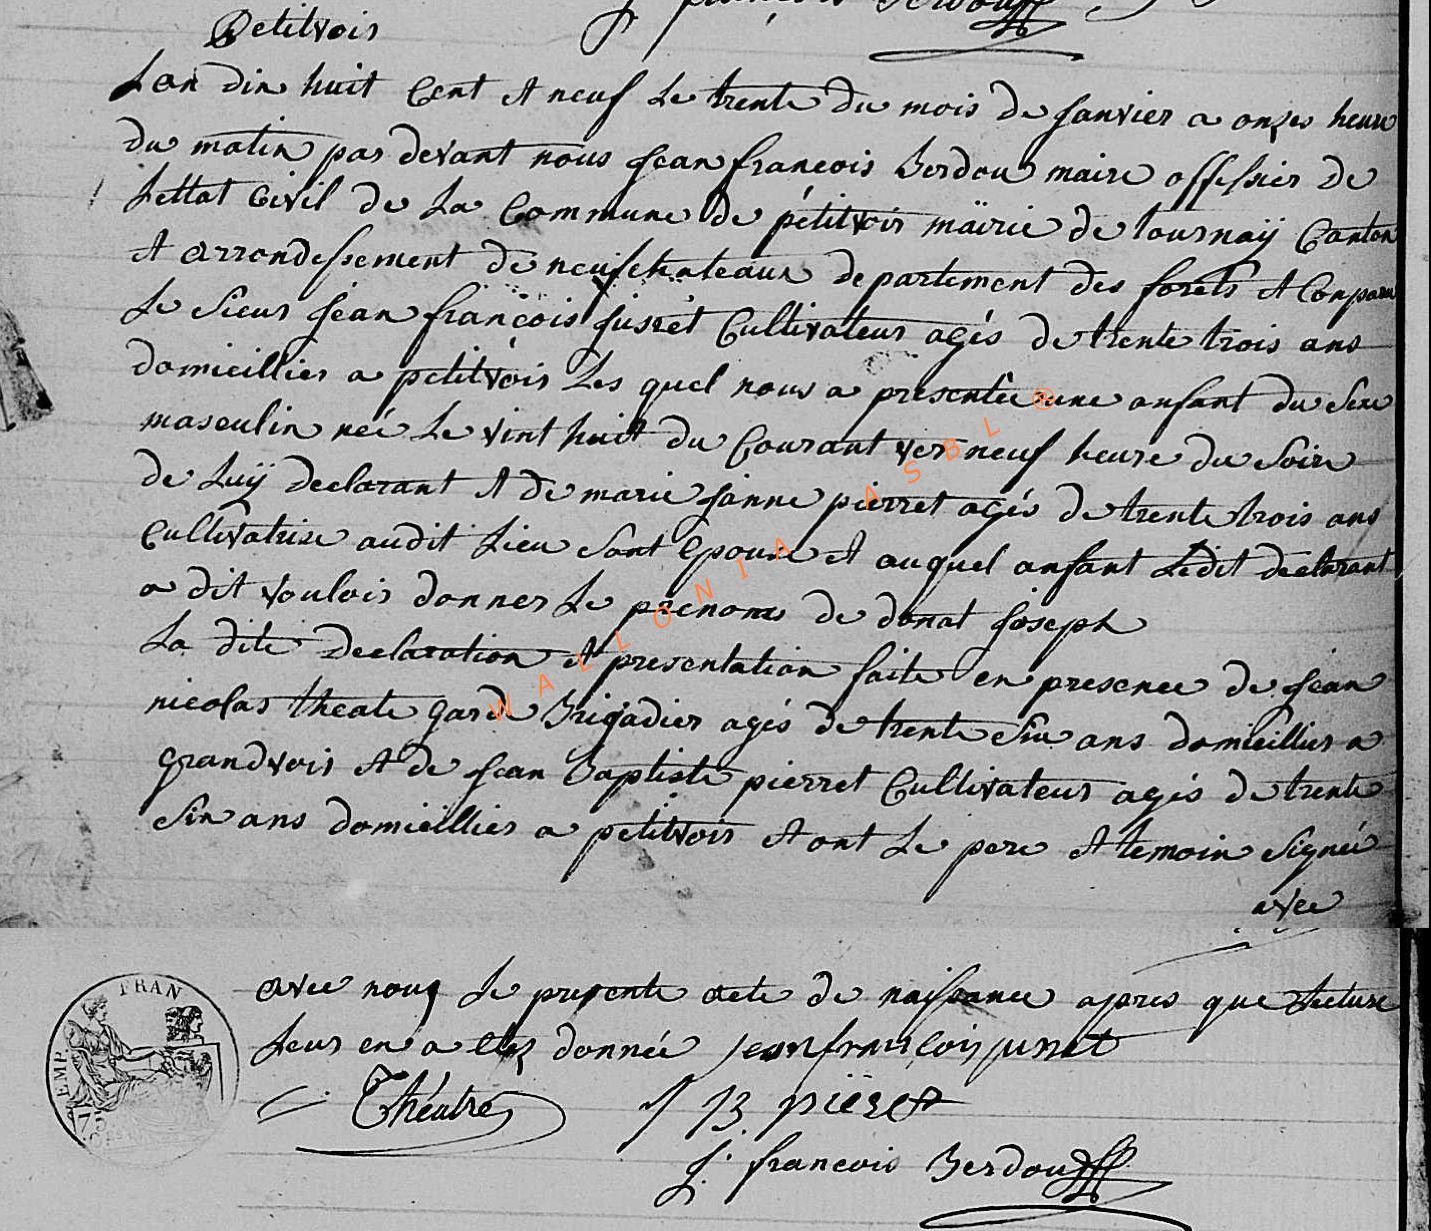 Petitvoir
J. francois Berdou
Lan dix huit Cent et neuf Le trente du mois de janvier a onzes heure
du matin par devant nous jean francois Berdou maire offissier de
Lettat Civil de La Commune de petitvoir mairie de tournaÿ Canton
et arrondessement de neufchateaux departement des forêts et Conparu
Le sieur jean françois jusret Cultivateur agés de trente trois ans
domicillier a petitvoir Les quel nous a presentée une anfant du sexe
masculin née Le vint huit du Courant ver neuf heure du soire
de Luÿ declarant et de marie janne pierret agés de trente trois ans
Cultivatrise audit Lieu sont Epouse et auquel anfant Ledit declarant
a dit vouloir donner Le prenoms de donat joseph
La dite declaration et presentation faite en presence de jean
nicolas theate garde Brigadier agés de trente six ans domicillier a
grandvoir et de jean baptiste pierret Cultivateur agés de trente
six ans domicillier a petitvoir et ont Le pere et temoin signée
avec
FRAN
TEMP
75
avec nous Le presente acte de naissance apres que Lecture
Leur en a etez donnée jean françois jusret
Théatre J B pieret
J. francois Berdou
WALLONIA ASBL ®